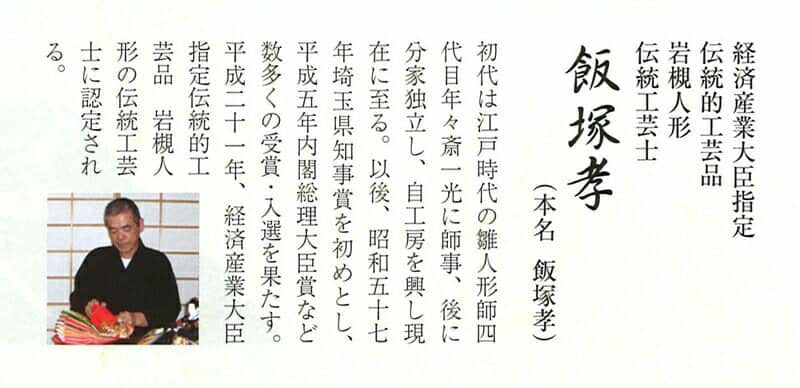 経済産業大臣指定
伝統的工芸品
岩槻人形
伝統工芸士
飯塚孝
(本名 飯塚孝)
初代は江戸時代の雛人形師四
代目年々斎一光に師事、後に
分家独立し、自工房を興し現
在に至る。以後、昭和五十七
年埼玉県知事賞を初めとし、
平成五年内閣総理大臣賞など
数多くの受賞・入選を果たす。
平成二十一年、経済産業大臣
指定伝統的工
芸品 岩槻人
形の伝統工芸
士に認定され
る。